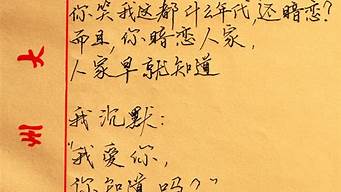 你笑我这都什么年代,还暗恋?
而且,你暗恋人家,
人家早就知道
我沉默:
"我爱你,
你知道吗?"
州大